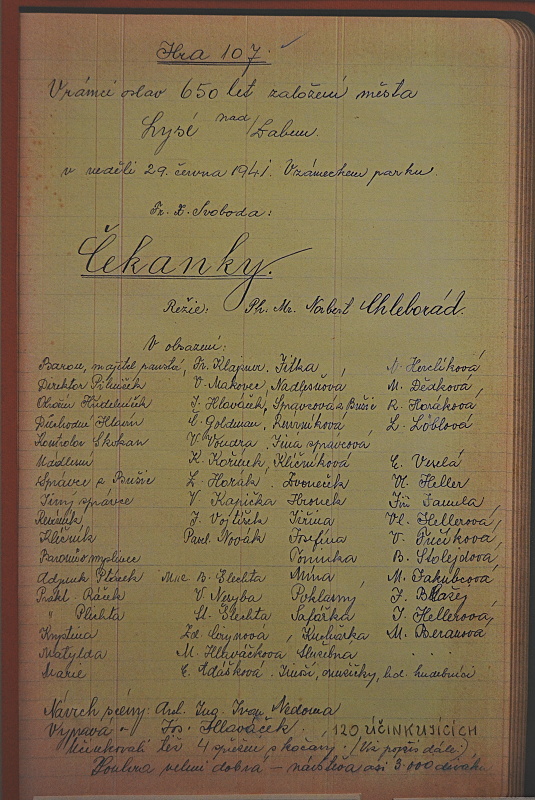 Hra 107.
V rámci oslav 650 let založení města
Lysé nad/Labem.
v neděli 29. června 1941. V zámeckem parku.
Fr. X. Svoboda:
Čekanky.
Režie: Ph. Mr. Norbert Chleborád.
V obsazení:
Baron, majitel panství, Fr. Klajsner. Jitka N. Herclíková
Direktor V. Makovec, Nadlesňová M. Dědková
J. Hlaváček, Správcová z Bušic K. Horáková
Důchodní Hlavín Č. Goldman, L. Löblová
Kontrolor Skokan V. Voudra. Jiná správcová
K. Kořínek, Klíčníková E. Veselá
Správce z Bušic L. Horák. Zvoneček Vl. Heller
Jiný správce V. Kapička Hronek Jiří Samela
J. Vojtíšek Jiřina Vl. Hellerová,
Klíčník Pavel Novák Josefína V.
Baronův myslivec B. Stolejdová
Adjunk Ptáček B. Šlechta Mína M. Jakubcová
Prakt. Ráček V. Neryba Poklasný J. Blažej
" Plichta St. Šlechta Šafářka J. Hellerová,
Kristina Zd. , Kuchařka M. Beranová
Matylda M. Hlaváčková Služebna . . .
Marie E. Adášková. hudebníci
Návrh scény: Arch. Ing. Ivan Nedoma
Výprava - Jos. Hlaváček. , 120 ÚČINKUJÍCÍCH
Účinkovali též 4 spřežení s kočáry. (Viz popis dále.)
Souhra velmi dobrá – návštěva asi 3.000 diváků.